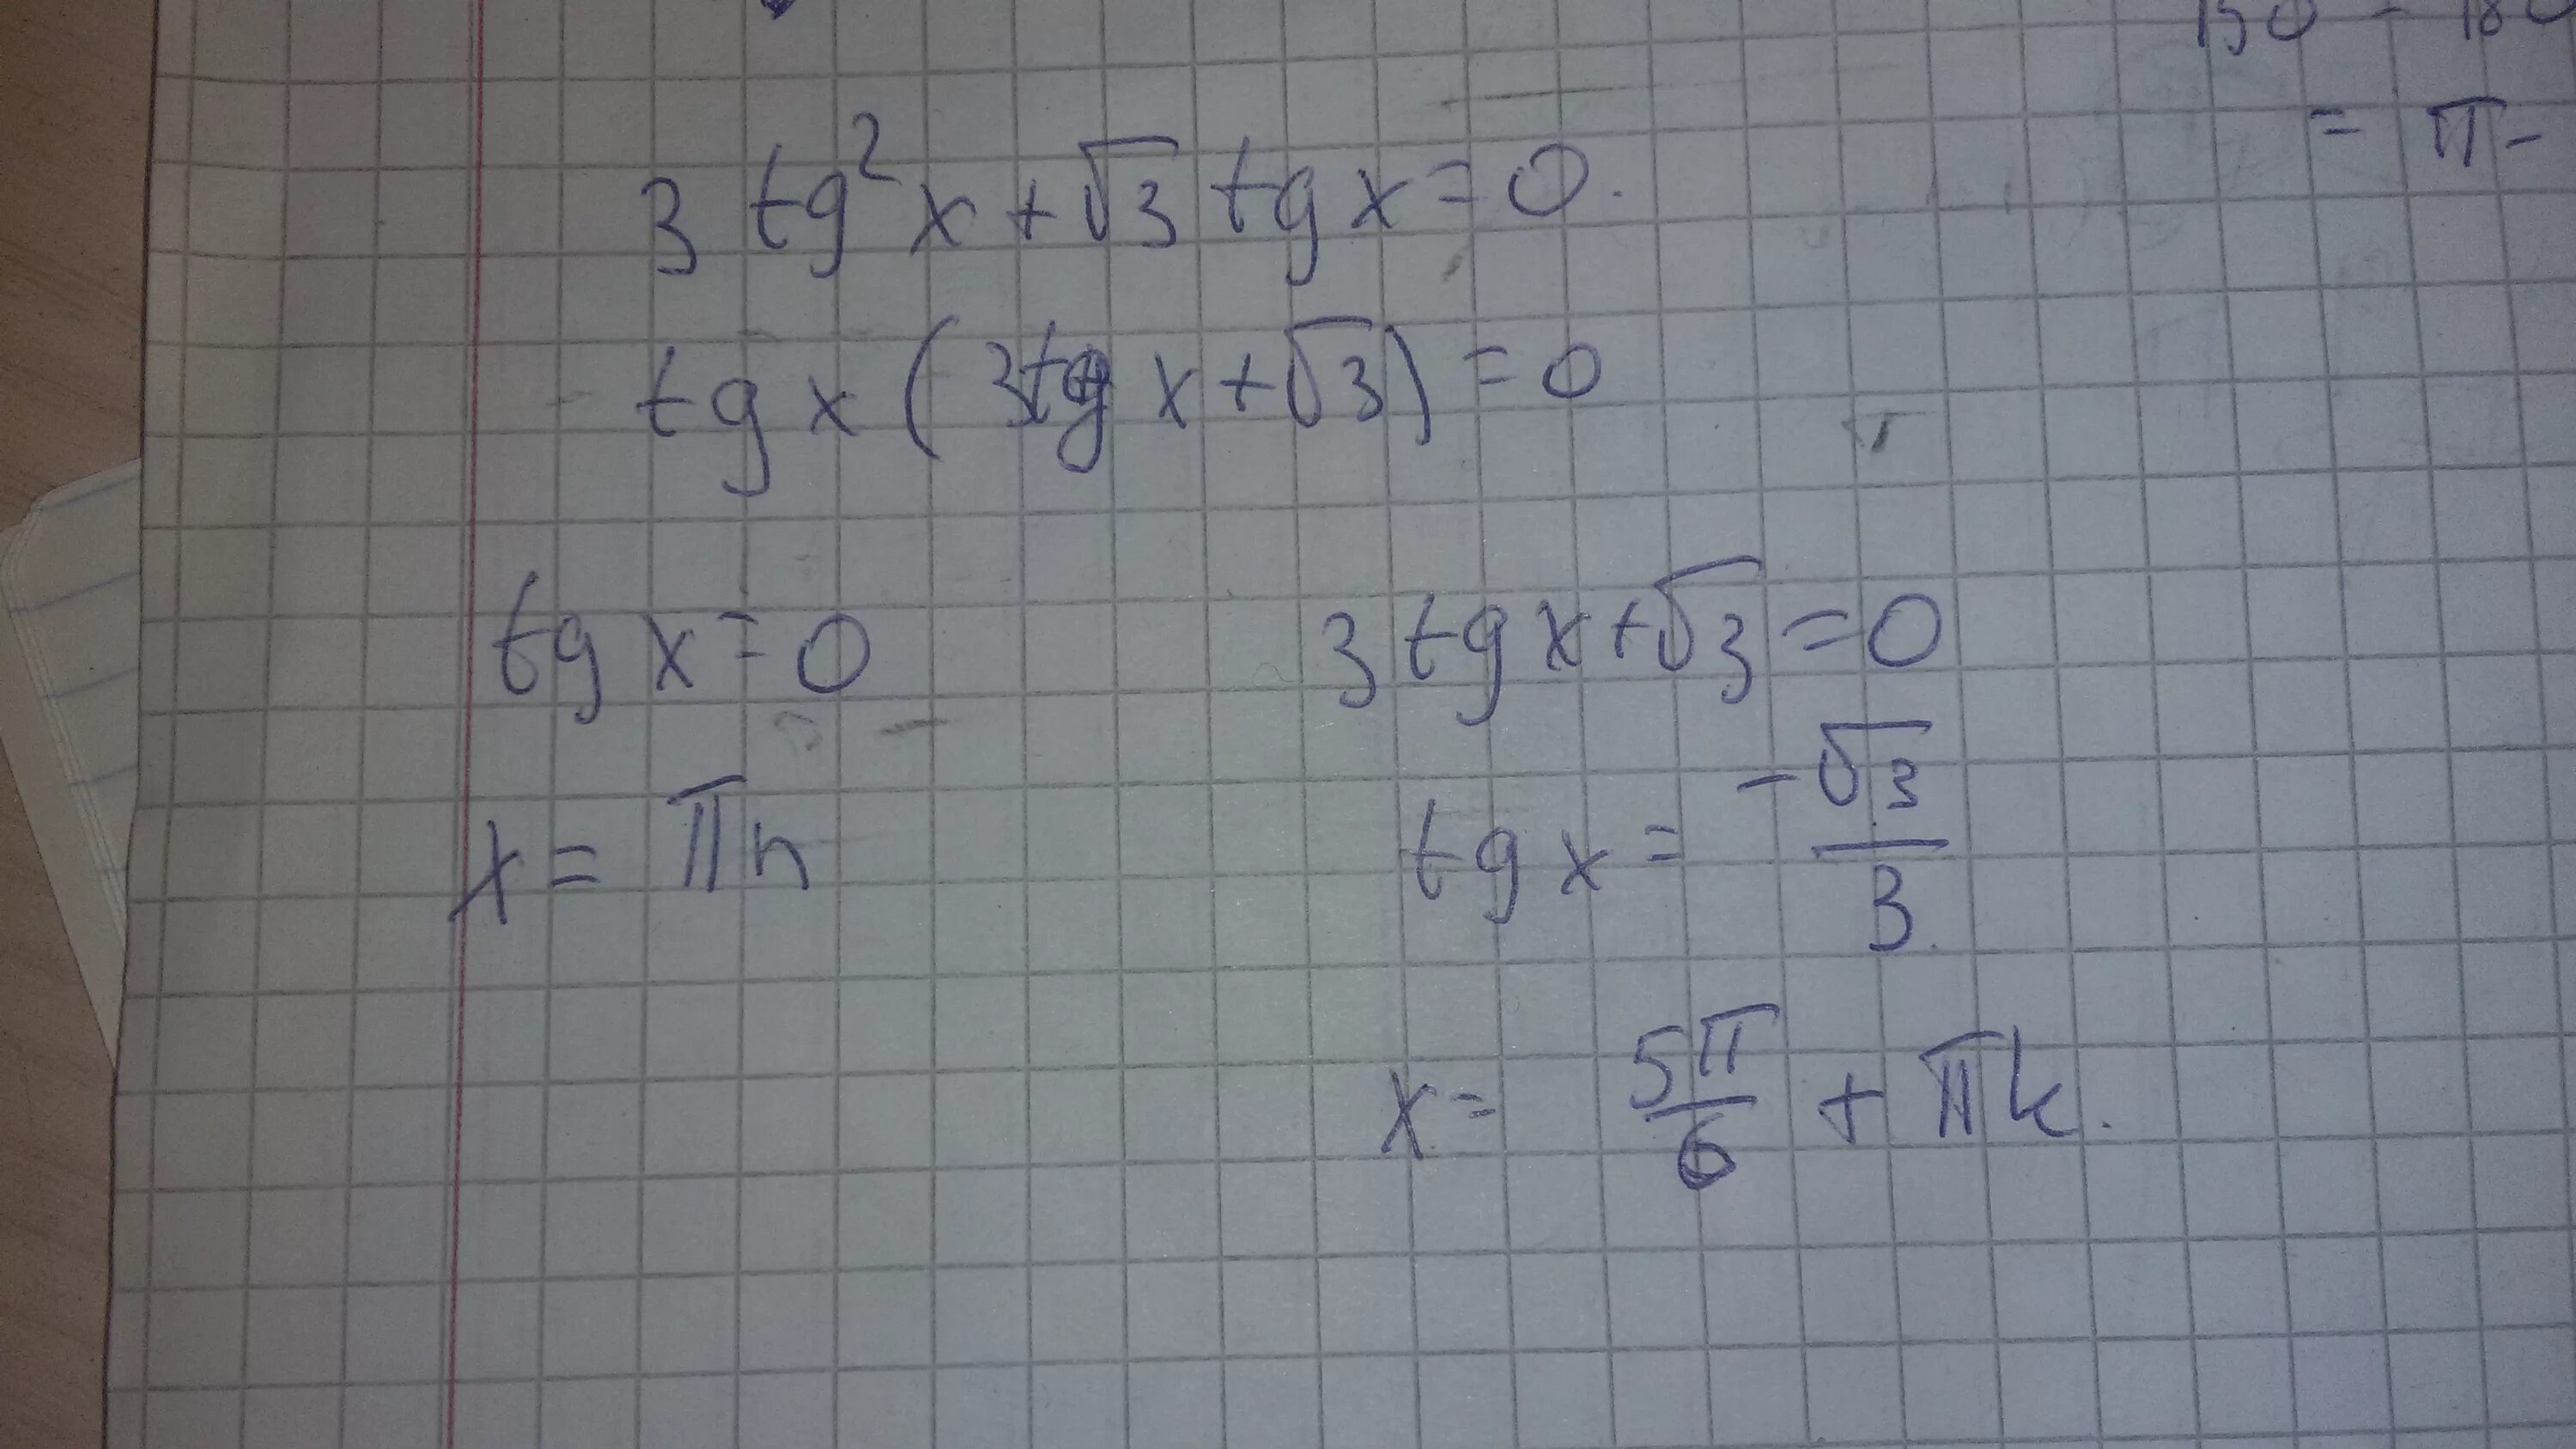 150 - 180
= π-
3 tg² x + √3 tg x = 0.
tg x (3tg x + √3) = 0
tg x = 0 3 tg x + √3 = 0
x = πn tg x = -√3/3
x = 5π/6 + πk.